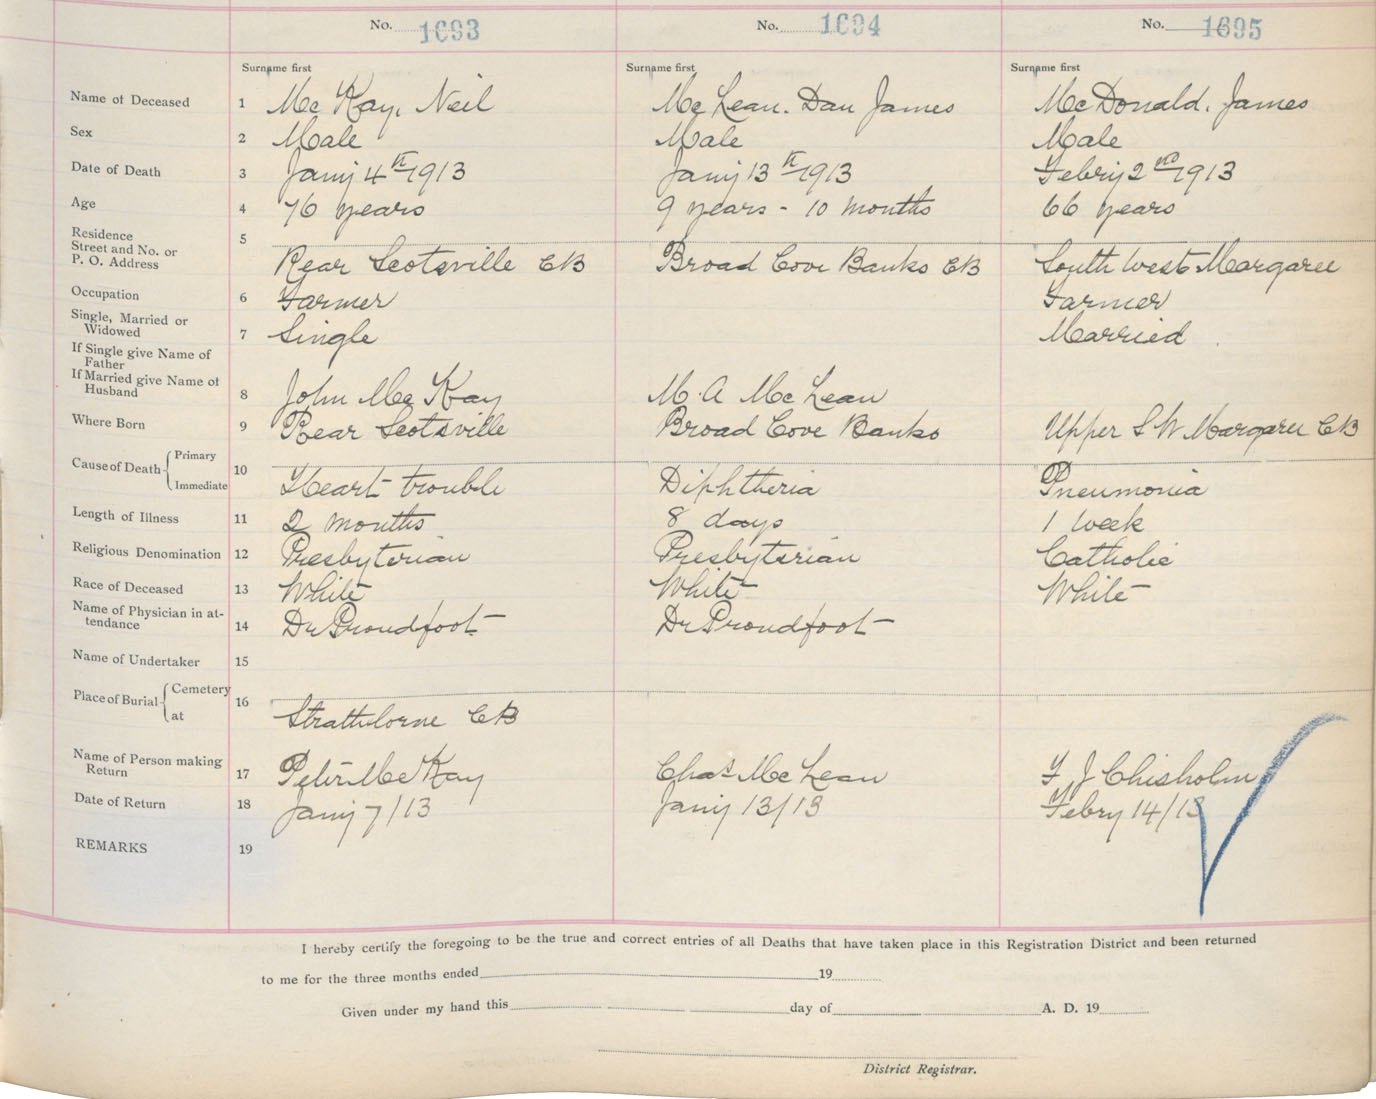 No. 1693 No. 1694 No. 1695
Surname first Surname first Surname first
Name of Deceased 1 Mc Kay, Neil Mc Lean. Dan James Mc Donald, James
Sex 2 Male Male Male
Date of Death 3 Jany 4th 1913 Jany 13th 1913 Febry 2nd 1913
Age 4 76 years 9 years - 10 months 66 years
Residence 5
Street and No. or
P. O. Address Rear Scotsville CB Broad Cove Banks CB South West Margaree
Occupation 6 Farmer Farmer
Single, Married or
Widowed 7 Single Married
If Single give Name of
Father
If Married give Name of
Husband 8 John Mc Kay M. A Mc Lean
Where Born 9 Rear Scotsville Broad Cove Banks Upper S W Margaree CB
Cause of Death Primary 10
Immediate Heart trouble Diphtheria Pneumonia
Length of Illness 11 2 months 8 days 1 week
Religious Denomination 12 Presbyterian Presbyterian Catholic
Race of Deceased 13 White White White
Name of Physician in at-
tendance 14 Dr Proudfoot Dr Proudfoot
Name of Undertaker 15
Place of Burial Cemetery 16
at Strathlorne CB
Name of Person making
Return 17 Peter Mc Kay Chas Mc Lean F J Chisholm
Date of Return 18 Jany 7/13 Jany 13/13 Febry 14/13
REMARKS 19
I hereby certify the foregoing to be the true and correct entries of all Deaths that have taken place in this Registration District and been returned
to me for the three months ended 19
Given under my hand this day of A. D. 19
District Registrar.